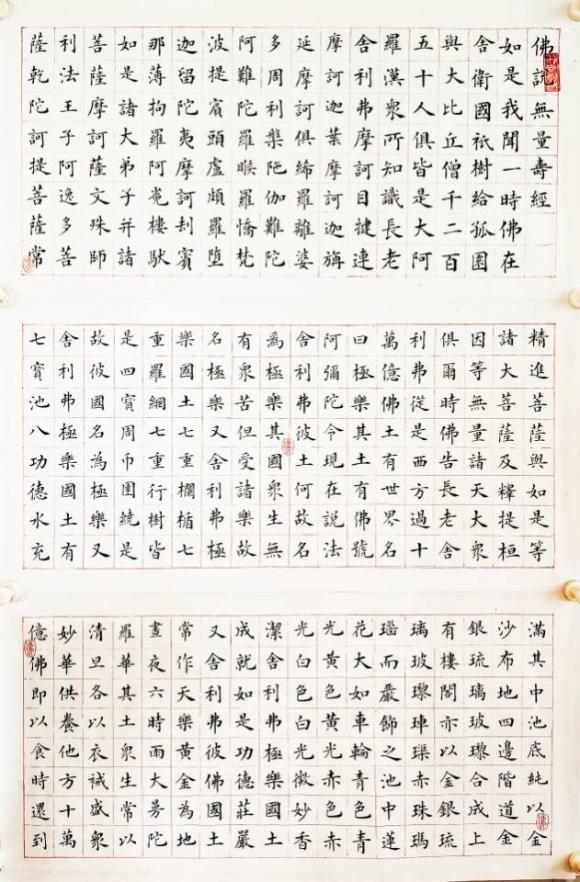 佛說無量壽經
如是我聞一時佛在
舍衛國祇樹給孤園
與大比丘僧千二百
五十人俱皆是大阿
羅漢眾所知識長老
舍利弗摩訶目揵連
摩訶迦葉摩訶迦旃
延摩訶俱絺羅離婆
多周利槃陁伽難陀
阿難陀羅睺羅憍梵
波提賓頭盧頗羅墮
迦留陀夷摩訶刦賓
那薄拘羅阿㝹樓馱
如是諸大弟子并諸
菩薩摩訶薩文殊師
利法王子阿逸多菩
薩乾陀訶提菩薩常
精進菩薩與如是等
諸大菩薩及釋提桓
因等無量諸天大眾
俱爾時佛告長老舍
利弗從是西方過十
萬億佛土有世界名
曰極樂其土有佛號
阿彌陀今現在說法
舍利弗彼土何故名
為極樂其國眾生無
有眾苦但受諸樂故
名極樂又舍利弗極
樂國土七重欄楯七
重羅網七重行樹皆
是四寶周帀圍繞是
故彼國名為極樂又
舍利弗極樂國土有
七寶池八功德水充
滿其中池底純以金
沙布地四邊階道金
銀琉璃玻瓈合成上
有樓閣亦以金銀琉
璃玻瓈硨磲赤珠瑪
瑙而嚴飾之池中蓮
花大如車輪青色青
光黃色黃光赤色赤
光白色白光微妙香
潔舍利弗極樂國土
成就如是功德莊嚴
又舍利弗彼佛國土
常作天樂黃金為地
晝夜六時雨大曼陀
羅華其土眾生常以
清旦各以衣祴盛眾
妙華供養他方十萬
億佛即以食時還到